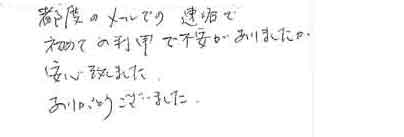 都度のメールでの連絡で
初めての利用で不安がありましたが、
安心致しました。
ありがとうございました。